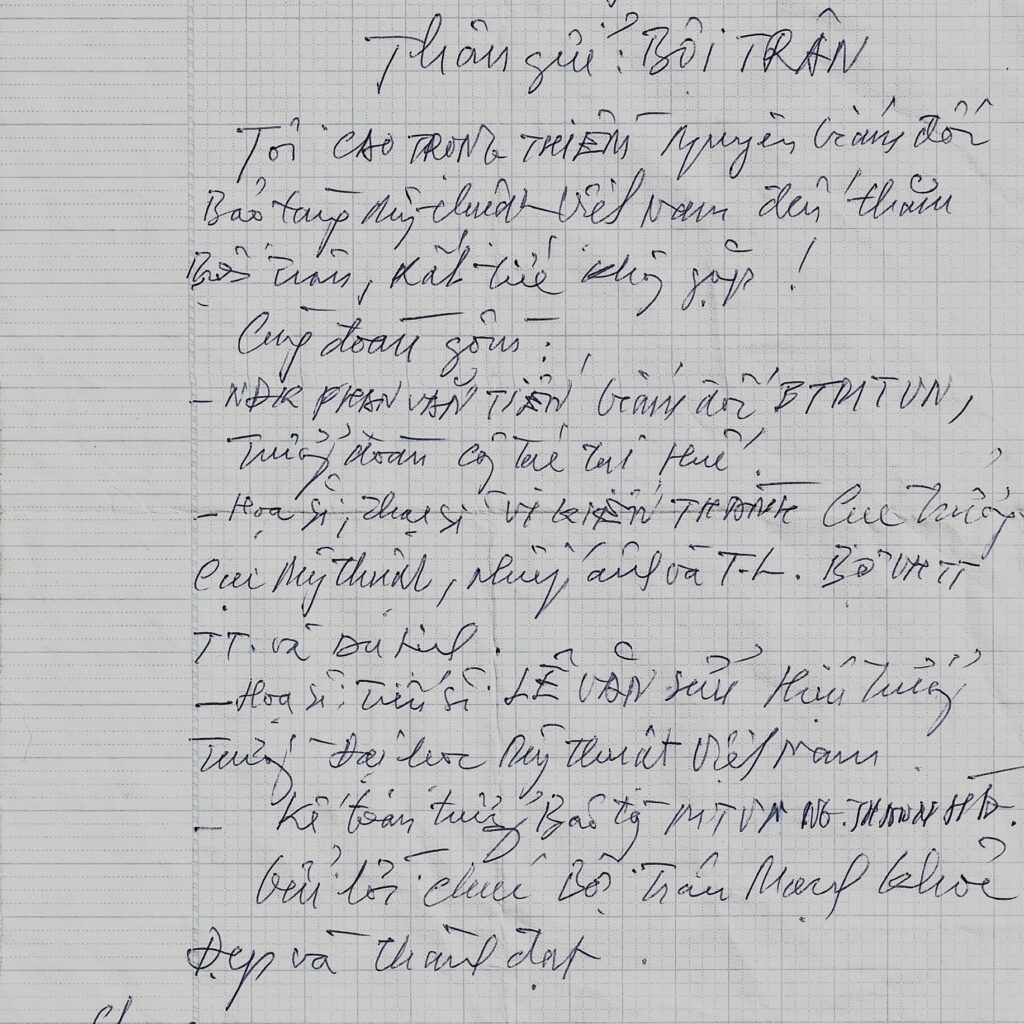 Thân gửi: BÔI TRÂN
Tôi CAO TRỌNG THIỀM Nguyên Giám đốc
Bảo tàng Mỹ thuật Việt Nam đến thăm
Bôi Trân, rất tiếc không gặp!
Cùng đoàn gồm:
- PHAN VĂN TIẾN Giám đốc BTMTVN,
Trưởng đoàn công tác tại Huế.
- Họa sĩ, thạc sĩ VI KIẾN THÀNH Cục trưởng
Cục Mỹ thuật, Nhiếp ảnh và T.L. BỘ VH TT
TT. và Du lịch.
- Họa sĩ: Tiến sĩ LÊ VĂN SỬU Hiệu trưởng
Trường Đại học Mỹ thuật Việt Nam
- Kế toán trưởng Bảo tg MTVN NG.
Gửi lời chúc Bôi Trân Mạnh khỏe
Đẹp và thành đạt.